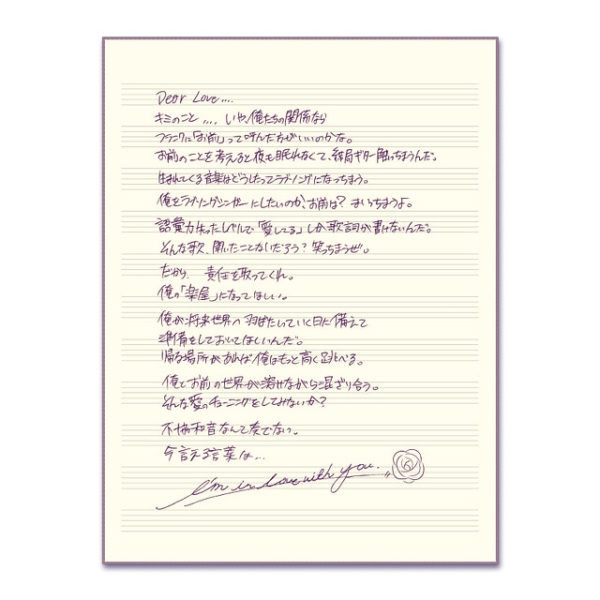 Dear Love....
キミのこと .... いや俺たちの関係なら
フランクに「お前」って呼んだ方がいいのかな。
お前のことを考えると夜も眠れなくて、結局ギター触っちまうんだ。
生まれてくる音楽はどうしたってラブソングになっちまう。
俺をラブソングシンガーにしたいのか、お前は? まいっちまうよ。
語彙力失ったレベルで「愛してる」しか歌詞が書けないんだ。
そんな歌、聞いたことないだろう? 笑っちまうぜ。
だから、責任を取ってくれ。
俺の「楽屋」になってほしい。
俺が将来世界へ羽ばたいていく日に備えて
準備をしておいてほしいんだ。
帰る場所があれば俺はもっと高く跳べる。
俺とお前の世界が溶けながら混ざり合う。
そんな愛のチューニングをしてみないか?
不協和音なんて奏でない。
今言える言葉は...
I'm in Love with you.